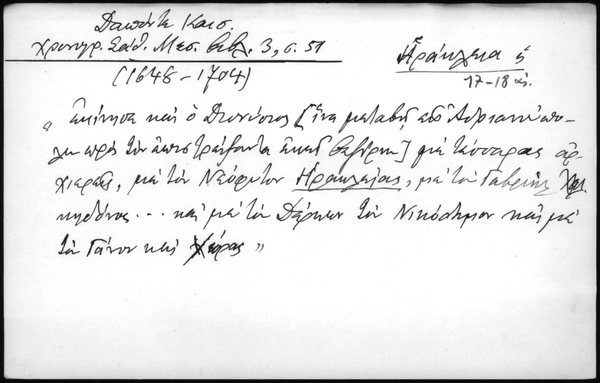 Δαπόντε Καισ.
Χρονογρ. Σάθ. Μεσ. βιβλ. 3, σ. 51
(1648-1704)
Ἡράκλεια
17-18 αἰ.
„ ἐκίνησε καὶ ὁ Διονύσιος [ἵνα μεταβῇ εἰς Ἀδριανούπο-
λιν πρὸς τὸν ἐπιστρέψαντα ἐκεῖ βεζίρην] μὲ τέσσαρας ἀρ-
χιερεῖς, μὲ τὸν Νεόφυτον Ἡρακλείας, μὲ τὸν Γαβριὴλ Χαλ-
κηδόνος... καὶ μὲ τὸν Δέρκων τὸν Νικόδημον καὶ μὲ
τὸν Γάνου καὶ Χώρας "